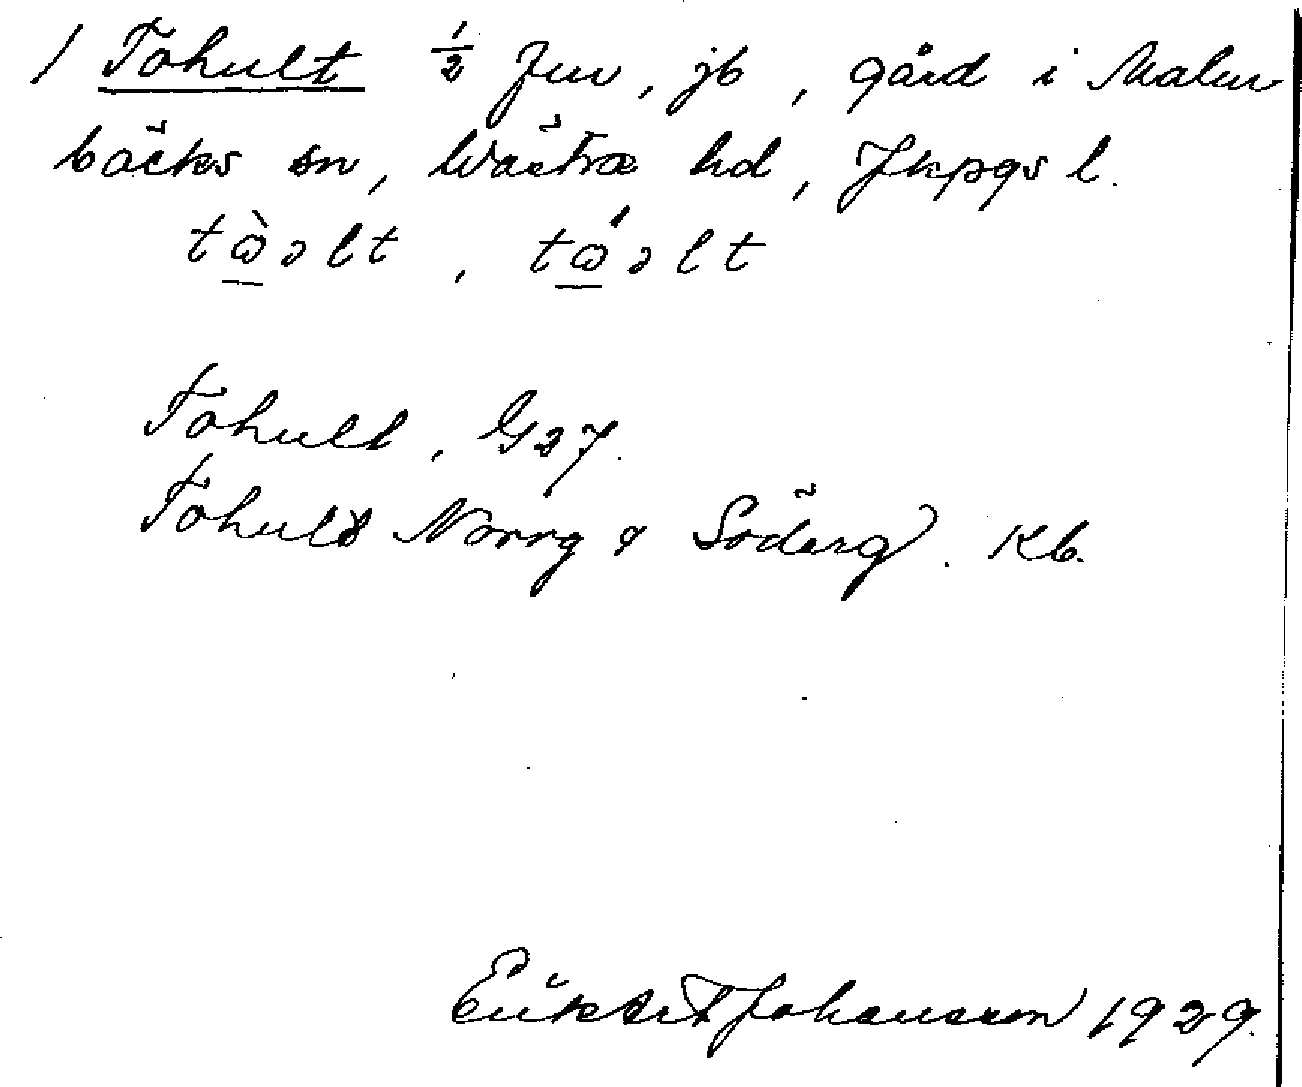 1 Tohult ½ fru, jb, gård i Malm-
bäcks sn, Västra hd, Jkpgs l.
tὼəlt, tώəlt
Tohult, G27.
Tohult Norrg & Söderg. Kb.
Johansson 1929.